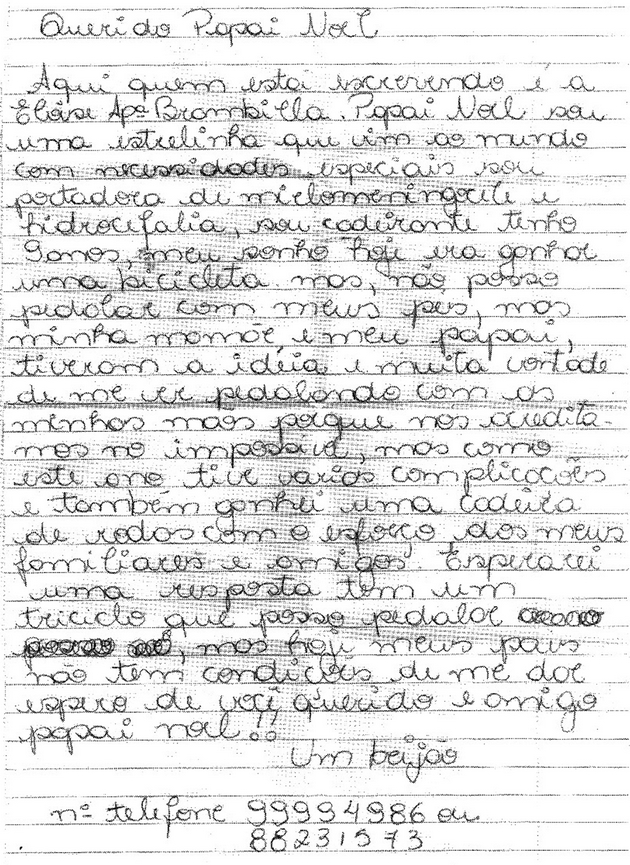 Querido Papai Noel
Aqui quem estai escrevendo é a
Eloise Apª Brambilla. Papai Noel sou
uma estrelinha que vim ao mundo
com necessidades especiais sou
portadora de mielomeningocele e
hidrocefalia, sou cadeirante tenho
9 anos, meu sonho hoje era ganhar
uma bicicleta mas, não posso
pedalar com meus pes, mas
minha mamãe, e meu papai,
tiveram a idéia e muita vontade
de me ver pedalando com as
minhas mãos porque nós acredita-
mos no impossivel, mas como
este ano tive varias complicações
e também ganhei uma cadeira
de rodas com o esforço dos meus
familiares e amigos. Esperarei
uma resposta tem um
triciclo que posso pedalar
, mas hoje meus pais
não tem condições de me dar
espero de você querido e amigo
papai noel!!
Um beijão
nº telefone 99994986 ou
88231573